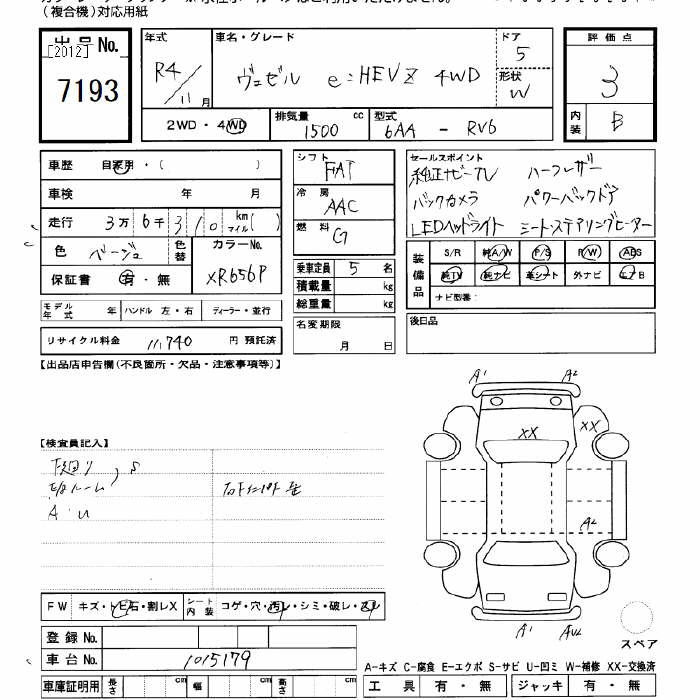 (複合機)対応用紙
出品No.
[2012]
7193
年式 R4/11月
車名・グレード
ヴェゼル e:HEV Z 4WD
ドア 5
形状 W
評価点 3
内装 B
2WD・4WD
排気量 1500 cc
型式 6AA - RV6
車歴 自家用・( )
車検 年 月
走行 3万6千310 km マイル( )
色 ベージュ 色替
カラーNo. XR656P
保証書 有・無
モデル年式 年 ハンドル 左・右 ディーラー・並行
リサイクル料金 11,740 円 預託済
シフト FAT
冷房 AAC
燃料 G
乗車定員 5 名
積載量 kg
総重量 kg
名変期限
月 日
セールスポイント
純正ナビ・TV ハーフレザー
バックカメラ パワーバックドア
LEDヘッドライト シート・ステアリングヒーター
装備品
S/R 純A/W P/S P/W ABS
純TV 純ナビ 革シート 外ナビ エアB
ナビ型番:
後日品
【出品店申告欄(不良箇所・欠品・注意事項等)】
【検査員記入】
下廻り、S
A・U
A1 A2
XX XX
A2
A1
スペア
FW キズ・トビ石・割レX
シート内装 コゲ・穴・汚レ・シミ・破レ・スレ
登録No.
車台No. 1015179
車庫証明用 長さ cm 幅 cm 高さ cm
A-キズ C-腐食 E-エクボ S-サビ U-凹ミ W-補修 XX-交換済
工具 有・無 ジャッキ 有・無